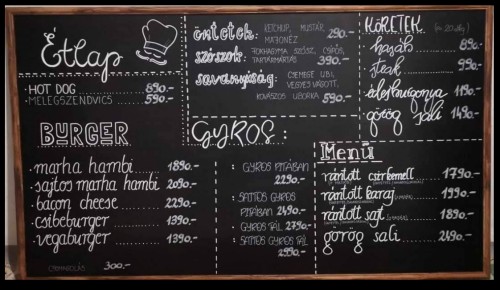 Étlap
HOT DOG 890.-
MELEGSZENDVICS 590.-
öntetek: KETCHUP, MUSTÁR, MAJONÉZ 290.-
szószok: FOKHAGYMA SZÓSZ, CSÍPŐS, TARTÁRMÁRTÁS 390.-
savanyúság: CSEMEGE UBI, VEGYES VÁGOTT,
KOVÁSZOS UBORKA 590.-
KÖRETEK
hasáb 890.-
steak 990.-
édesburgonya 1190.-
görög sali 1490.-
BURGER
marha hambi 1890.-
sajtos marha hambi 2090.-
bacon cheese 2290.-
csibeburger 1390.-
vegaburger 1390.-
CSOMAGOLÁS 300.-
GYROS:
: GYROS PITÁBAN
2290.-
: SAJTOS GYROS
PITÁBAN 2490.-
: GYROS TÁL 2790.-
: SAJTOS GYROS TÁL
2990.-
Menü
rántott csirkemell 1790.-
rántott karaj 1990.-
rántott sajt 1890.-
görög sali 2490.-